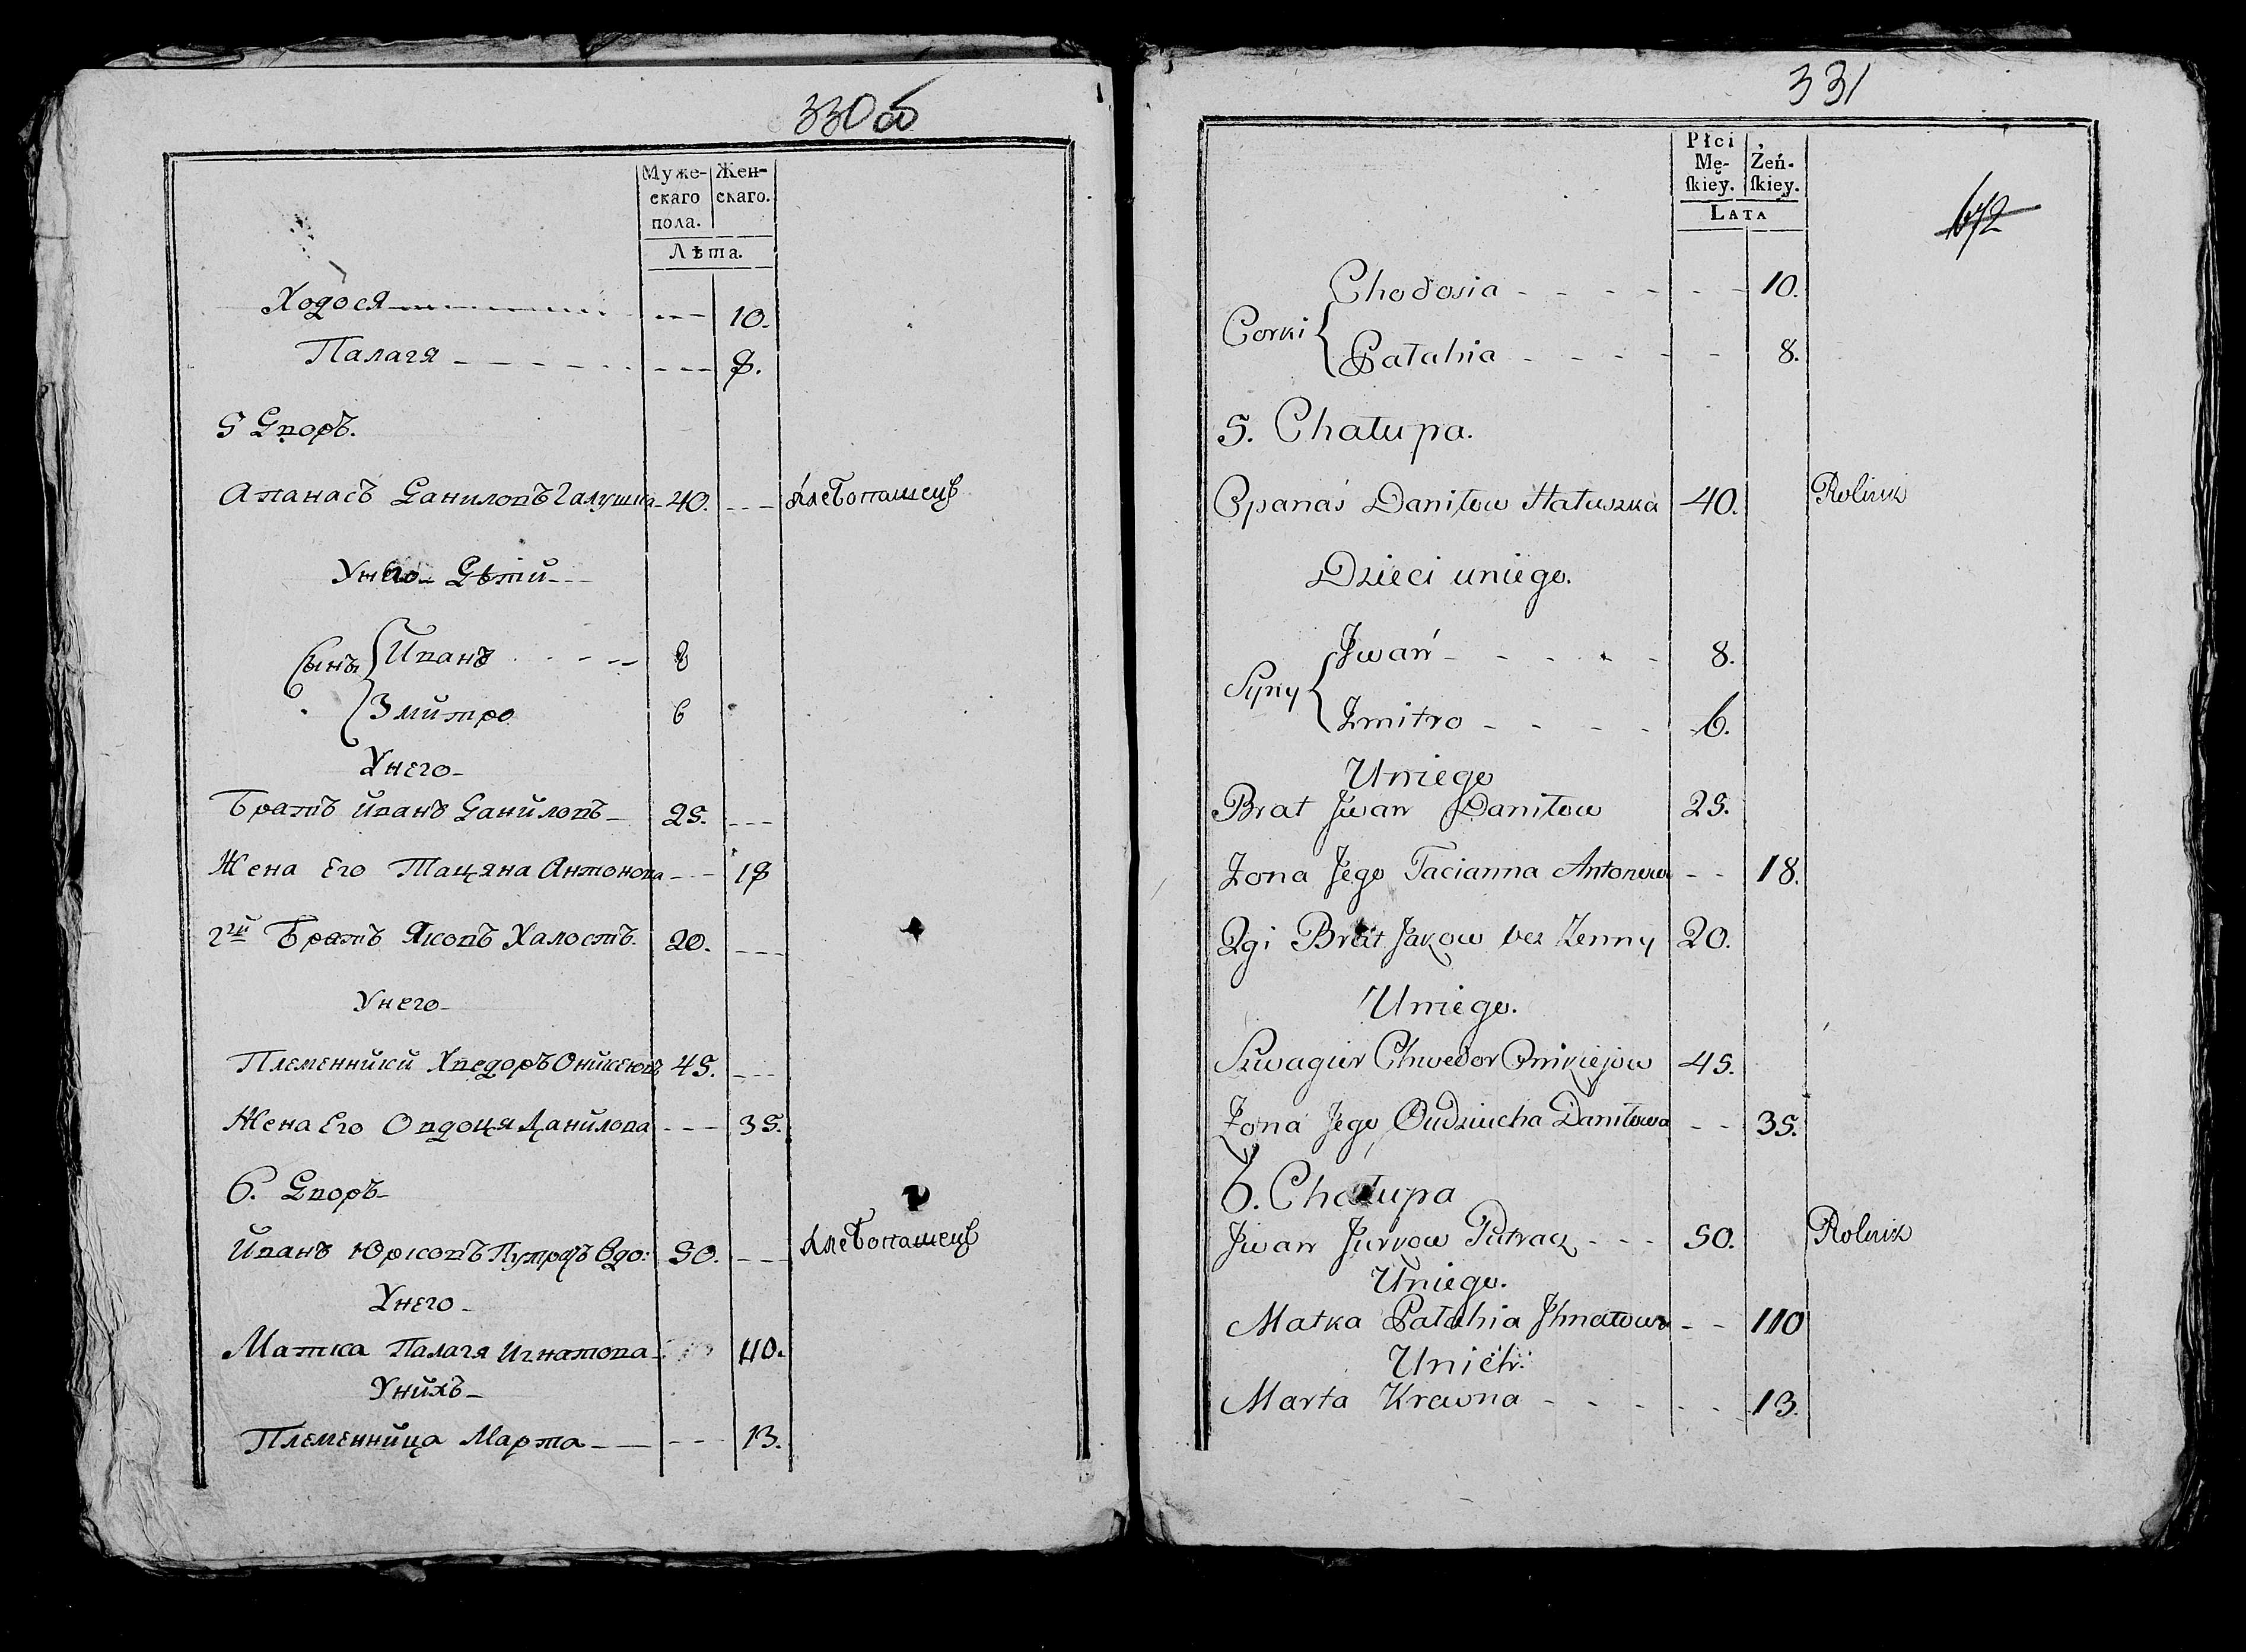 330 об
Муже-
скаго
пола.
Жен-
скаго.
Лѣта.
Ходося 10.
Палагя 8.
5 Дворъ.
Апанасъ Даниловъ Галушка 40. Хлебопашецъ
Унего Дѣти
Сынъ Иванъ 8
Змитро 6
Унего
Братъ Иванъ Даниловъ 25.
Жена Его Тацяна Антонова 18
2гй Братъ Яковъ Халостъ. 20.
Унего
Племенники Хведоръ Оникеювъ 45.
Жена Его Овдоця Данилова 35.
6. Дворъ
Иванъ Юрковъ Путрачъ Вдо: 50. Хлебопашецъ
Унего
Матка Палагя Игнатова 110.
Унихъ
Племенница Марта 13.
331
Płci
Mę-
skiey.
Żeń-
skiey.
Lata
672
Chodosia 10.
Corki
Pałahia 8.
5. Chałupa.
Opanaś Daniłow Hałuszka 40. Rolnik
Dzieci uniego.
Jwań 8.
Syny
Zmitro 6.
Uniego
Brat Jwan Daniłow 25.
Zona Jego Tacianna Antonowa 18.
2gi Brat Jakow bez Zenny 20.
Uniego.
Szwagier Chwedor Onikiejow 45.
Zona Jego Oudziucha Daniłowa 35.
6. Chałupa
Jwan Jurkow Putracz 50. Rolnik
Uniego.
Matka Pałahia Jhnatowa 110
Unich:
Marta Krewna 13.